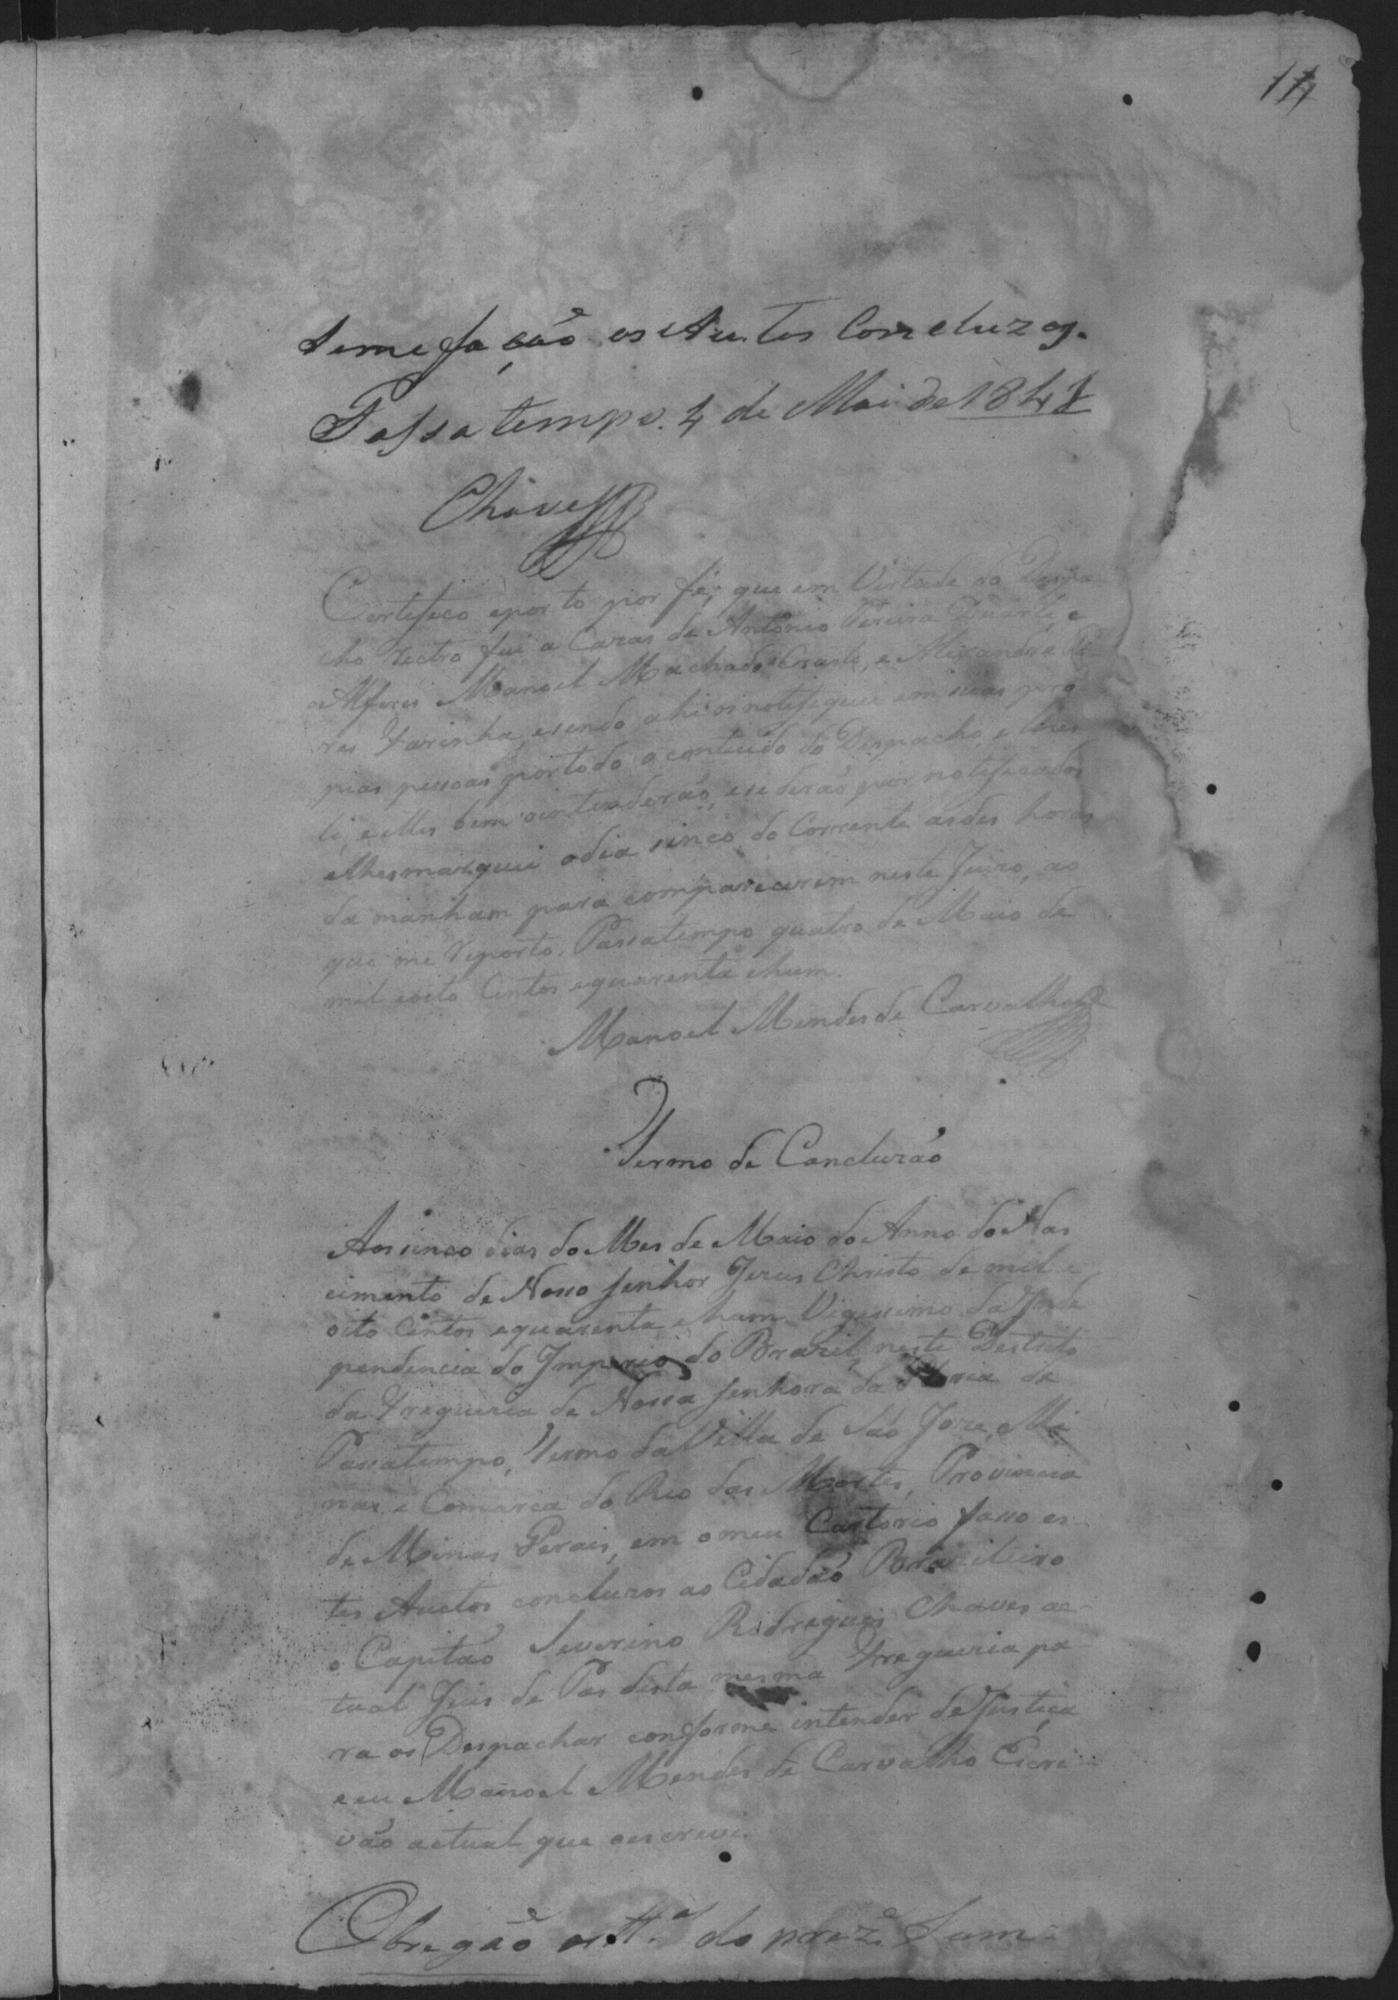 14
seme fação os Autos Concluzos.
Passatempo. 4 de Maio de 1841
Chaves
Certefico eporto por fé, que em Virtude do Despa
cho rectro fui a Cazas de Antonio Pereira Duarte, e
o Alferes Manoel Machado, e Alexandre Pi
res Farinha, esendo ahi os notefiquei em suas pro
pias pessoas portodo o contiúdo do Despacho, e lhes
li, e elles bem o intenderão, ese derão por notificados
elhes marquei odia sinco do Corrente asdes horas
da manham para comparecerem neste Juizo, ao
que me reporto. Passatempo quatro de Maio de
mil eoito Centos equarenta ehum.
Manoel Mendes de Carvalho
Termo de Concluzão
Aos sinco dias do Mes de Maio do Anno do Nas
cimento de Nosso Senhor Jezus Christo de mil e
oito Centos equarenta, ehum Vigessimo da Inde
pendencia do Imperio do Brazil, neste Destrito
da Fregueria de Nossa Senhora da Gloria de
Passatempo, Termo da Villa de São Joze, Mi
nas e Comarca do Rio das Mortes, Provincia
de Minas Gerais, em o meu Cartorio fasso es
tes Auctos concluzos ao Cidadão Brazileiro
o Capitão Severino Rodrigues Chaves ac
tual Juis de Pas desta mesma Fregueria pa
ra os Despachar conforme intender de Justiça
eeu Manoel Mendes de Carvalho Escri
vão actual que oescrevi.
Obregão as tt.as do prez.e Sum